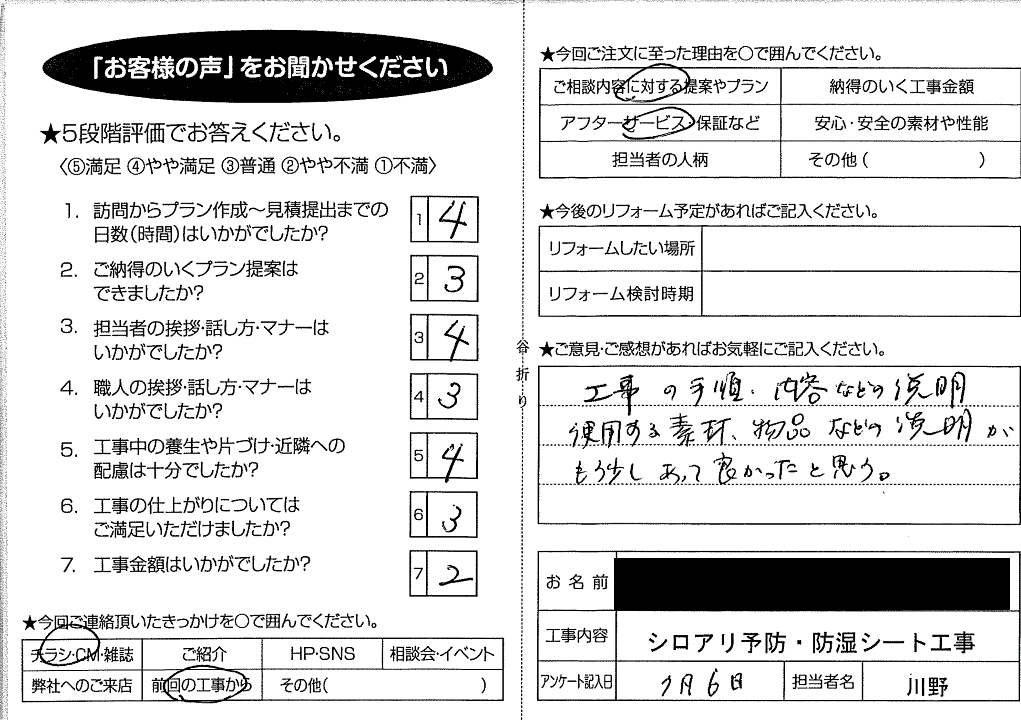 「お客様の声」をお聞かせください
★5段階評価でお答えください。
〈⑤満足 ④やや満足 ③普通 ②やや不満 ①不満〉
1. 訪問からプラン作成～見積提出までの
日数(時間)はいかがでしたか?
1 4
2. ご納得のいくプラン提案は
できましたか?
2 3
3. 担当者の挨拶・話し方・マナーは
いかがでしたか?
3 4
4. 職人の挨拶・話し方・マナーは
いかがでしたか?
4 3
5. 工事中の養生や片づけ・近隣への
配慮は十分でしたか?
5 4
6. 工事の仕上がりについては
ご満足いただけましたか?
6 3
7. 工事金額はいかがでしたか?
7 2
★今回ご連絡頂いたきっかけを○で囲んでください。
チラシ・CM・雑誌 ご紹介 HP・SNS 相談会・イベント
弊社へのご来店 前回の工事から その他( )
谷折り
★今回ご注文に至った理由を○で囲んでください。
ご相談内容に対する提案やプラン 納得のいく工事金額
アフターサービス・保証など 安心・安全の素材や性能
担当者の人柄 その他( )
★今後のリフォーム予定があればご記入ください。
リフォームしたい場所
リフォーム検討時期
★ご意見・ご感想があればお気軽にご記入ください。
工事の手順、内容などの説明
使用する素材、物品などの説明が
もう少しあって良かったと思う。
お名前
工事内容 シロアリ予防・防湿シート工事
アンケート記入日 7月6日 担当者名 川野